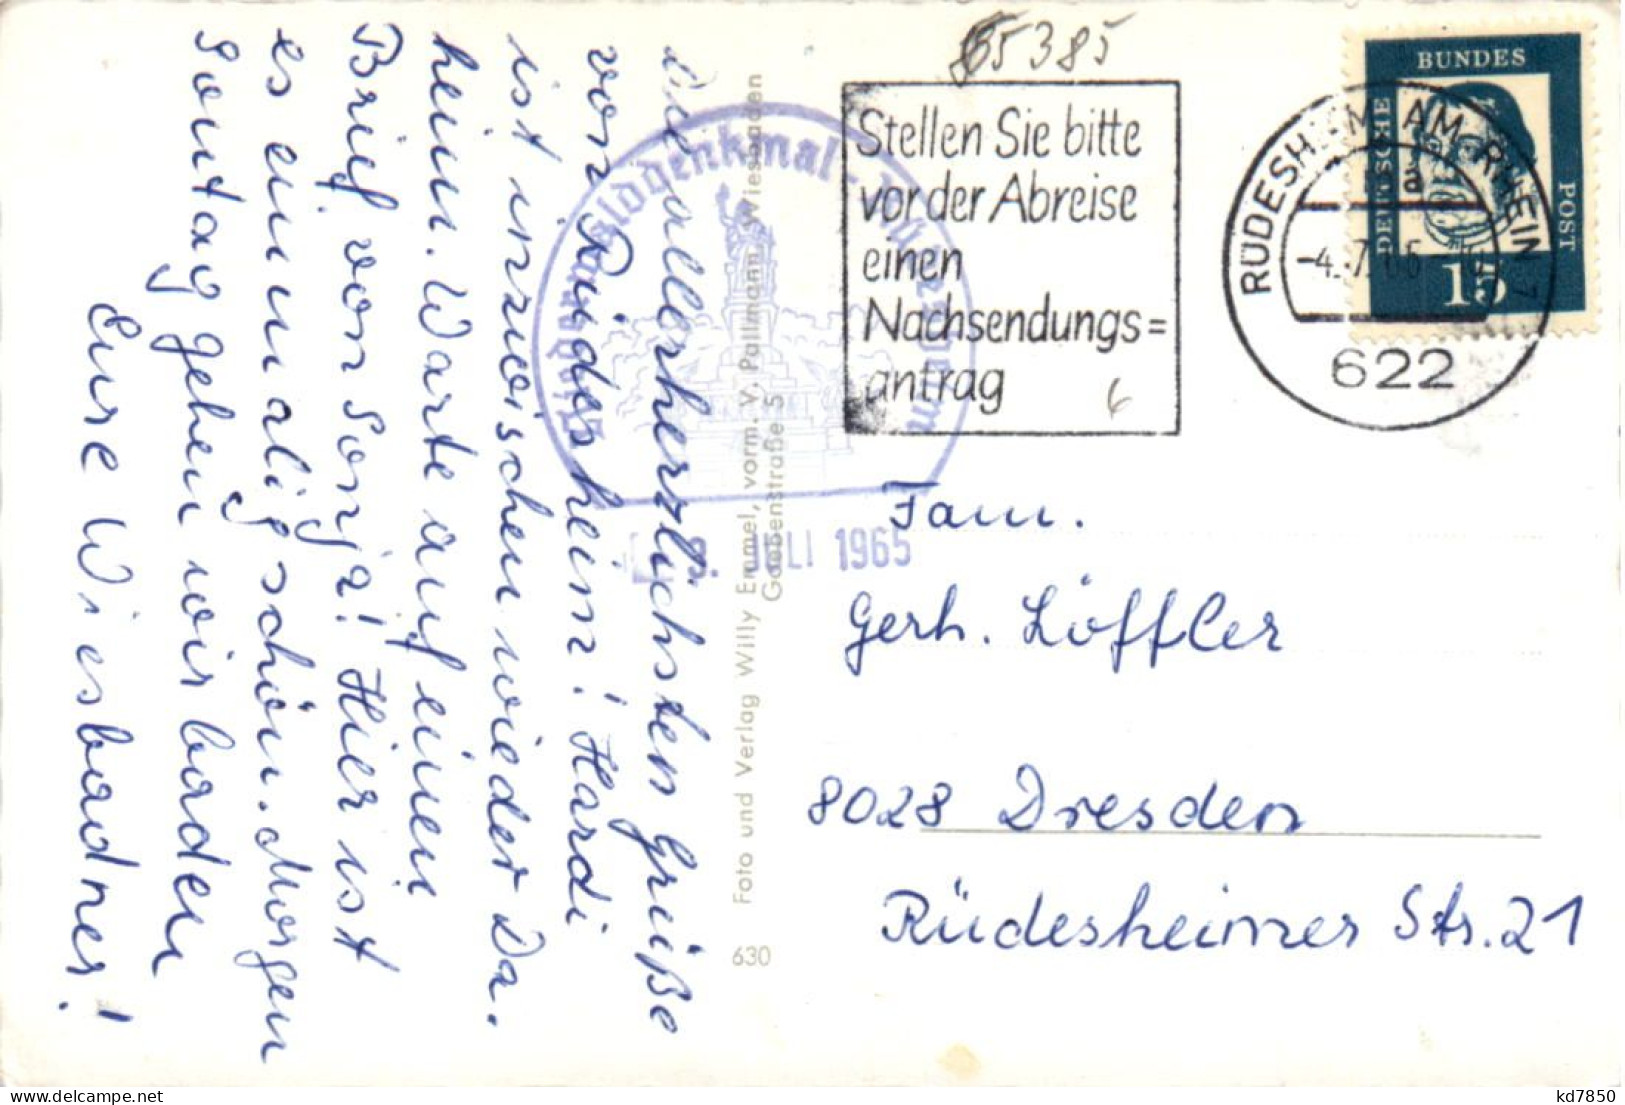 Die allerherzlichsten Grüße
von Rüdesheim! Hardi
ist inzwischen wieder da-
heim. Warte auf einen
Brief von Sonja! Hier ist
es einmalig schön. Morgen
Sonntag gehen wir baden
Eure Wiesbadner!
Foto und Verlag Willy Emmel, vorm. V. Pallmann, Wiesbaden
Goebenstraße 5
630
Niederwalddenkmal - Rüdesheim
JULI 1965
65385
Stellen Sie bitte
vor der Abreise
einen
Nachsendungs=
antrag
6
RÜDESHEIM AM RHEIN
a
-4.-7.65
622
DEUTSCHE
BUNDES
POST
15
Fam.
Gerh. Löffler
8028 Dresden
Rüdesheimer Str. 21
kd7850